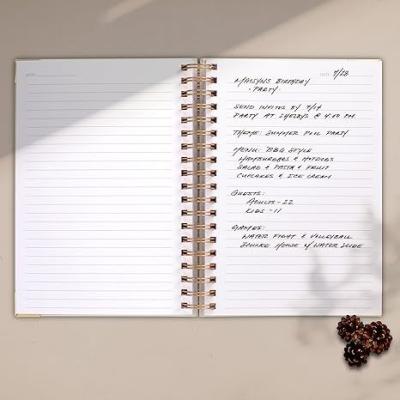 DATE 7/28
MAISYNS BIRTHDAY
- PARTY -
SEND INVITES BY 7/14
PARTY AT SHELBYS @ 4:00 PM
THEME: SUMMER POOL PARTY
MENU: BBQ STYLE
HAMBURGERS & HOTDOGS
SALAD & PASTA & FRUIT
CUPCAKES & ICE CREAM
GUESTS:
ADULTS - 22
KIDS - 11
GAMES:
WATER FIGHT & VOLLEYBALL
BOUNCE HOUSE W/ WATER SLIDE